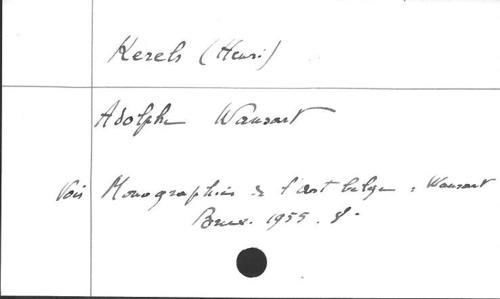 Kerels (Henri)
Adolphe Wansart
Voir Monographies de l'art belge : Wansart
Brux. 1955. 8°.